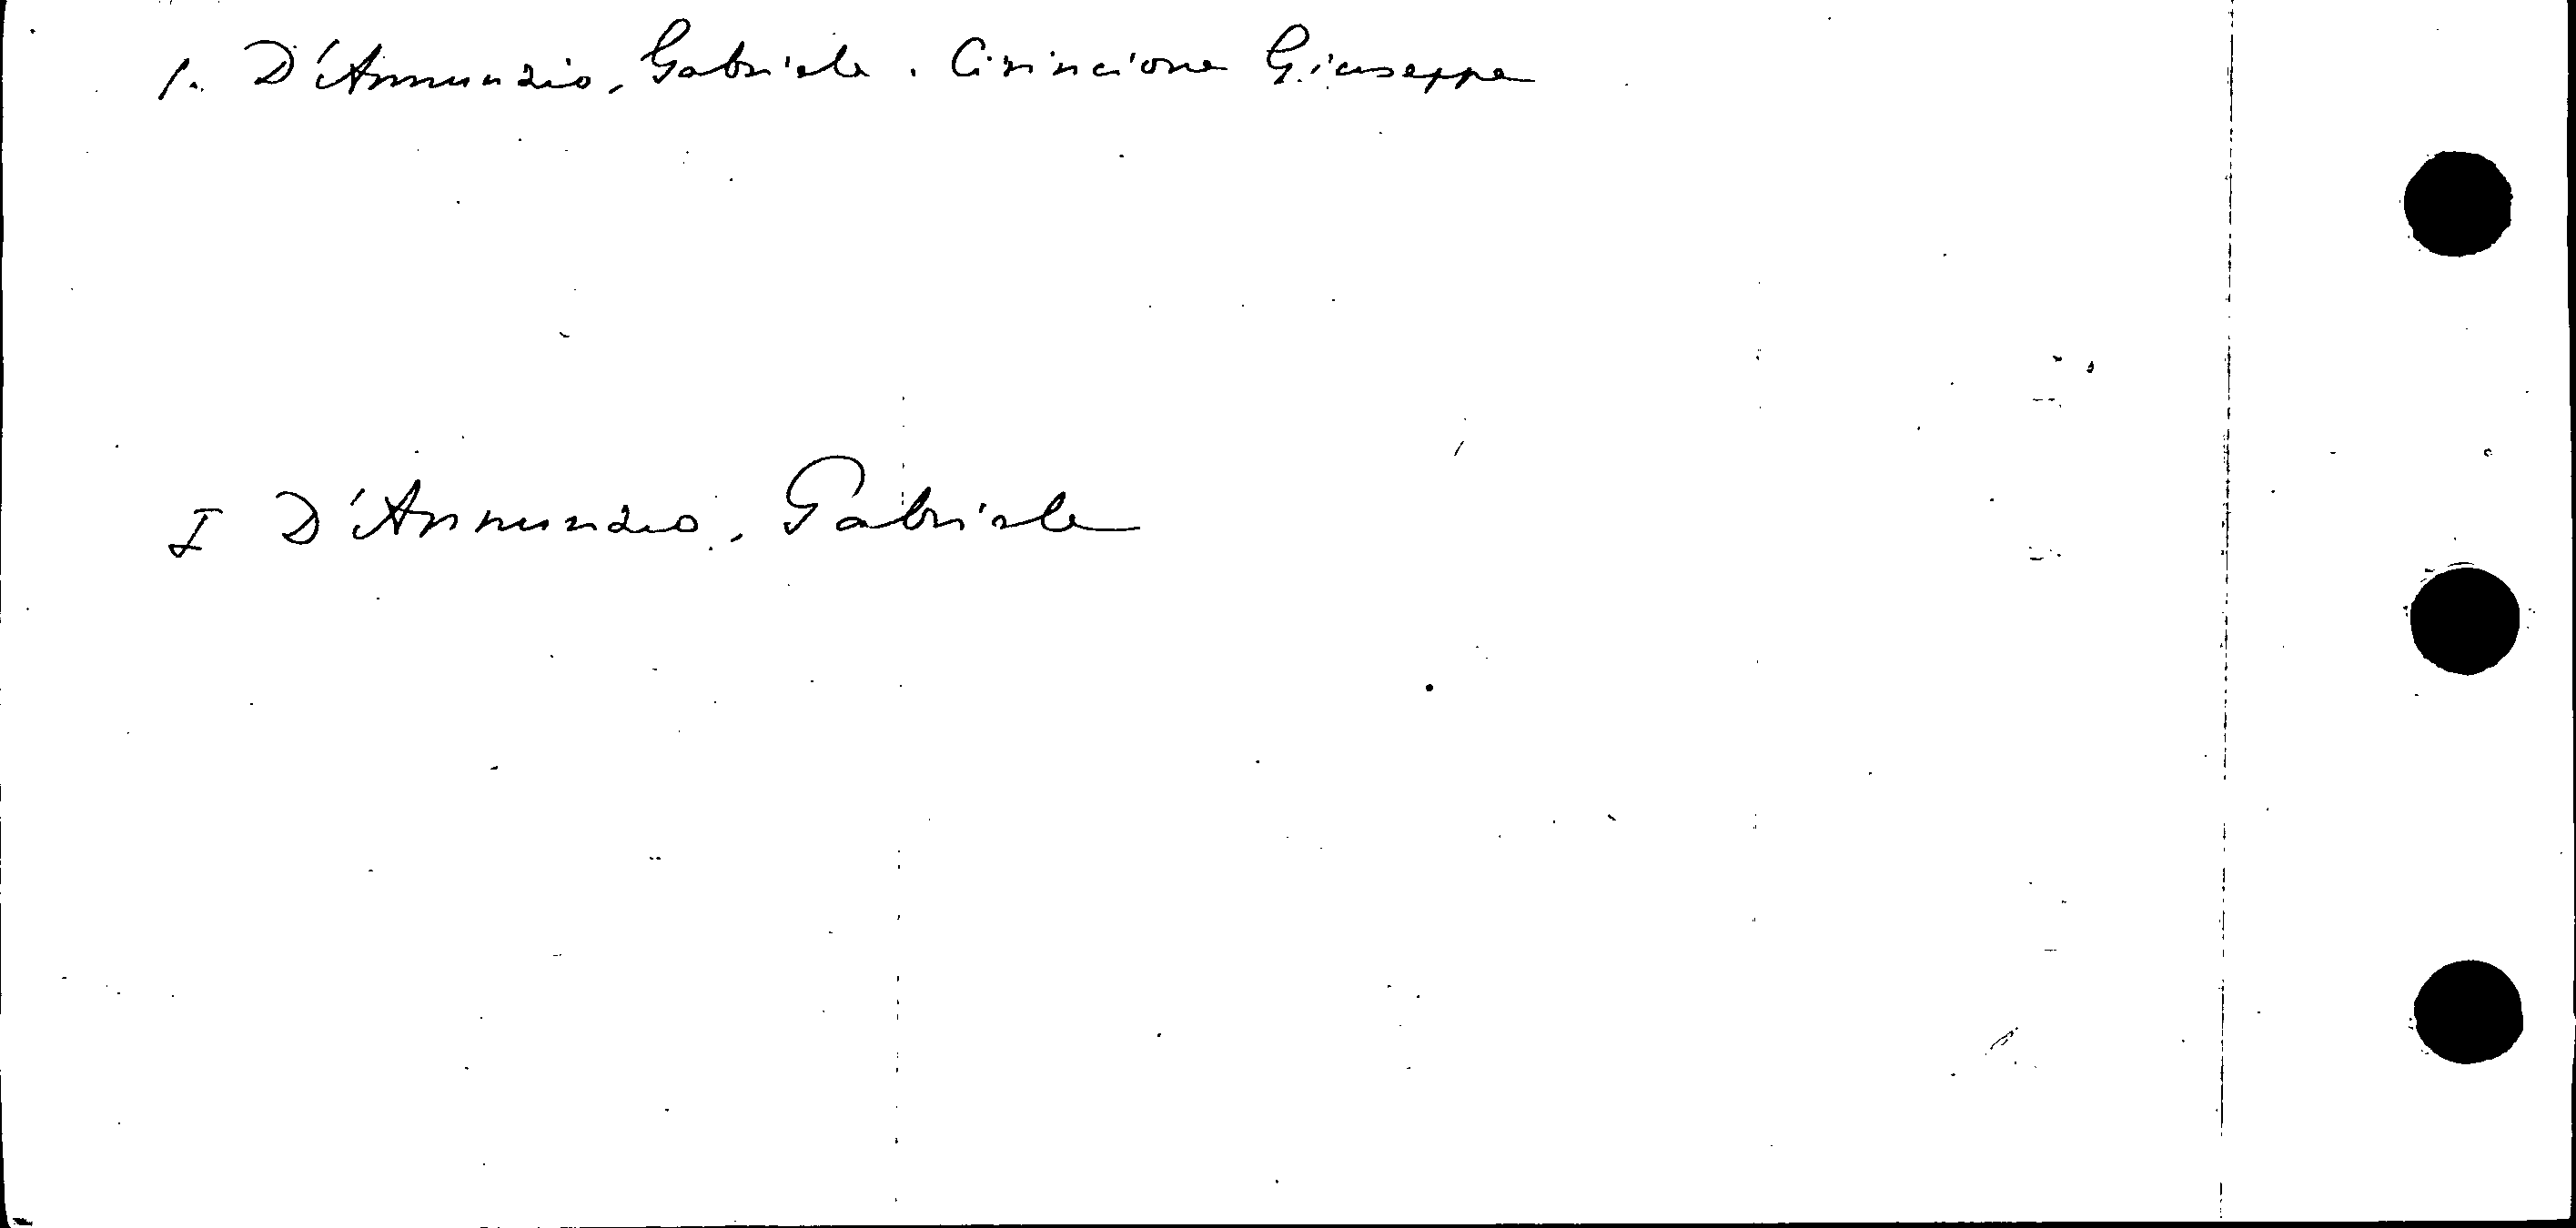 1. D'Annunzio, Gabriele. Cirincione Giuseppe
I D'Annunzio, Gabriele